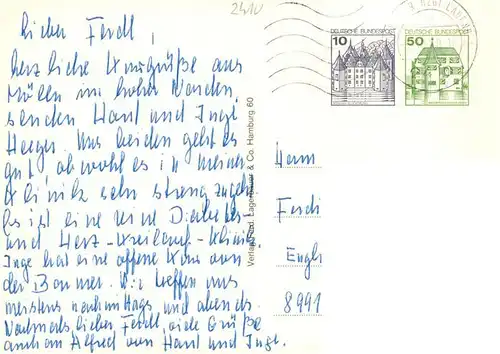 2410
Lieber Ferdl,
herzliche Kurgrüße aus
Mölln im hohen Norden,
senden Hans und Ingl
Uns beiden geht es
gut obwohl es in meiner
Klinik sehr streng zugeht
Es ist eine reine Diabetes-
und Herz-Kreislauf-Klinik
Inge hat eine offene Kur von
der Wir treffen uns
meistens nachmittags und abends.
Nochmals lieber Ferdl, viele Grüße
auch an Alfred von Hans und Ingl.
Verlag Lagerbauer & Co. Hamburg 60
DEUTSCHE BUNDESPOST
10
DEUTSCHE BUNDESPOST
50
Herrn
Ferdi
Engl
8991